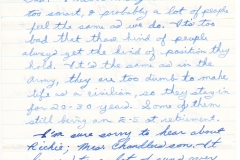 too smart, & probably a lot of people
feel the same as we do. It's too
bad that those kind of people
always get the kind of position they
hold. It'd the same as in the
Army, they are too dumb to make
life as a civilian, so they stay in
for 20-30 years. Some of them
still being an E-5 at retirement.
I'm sure sorry to hear about
Richie, Miss Chandler's son. It